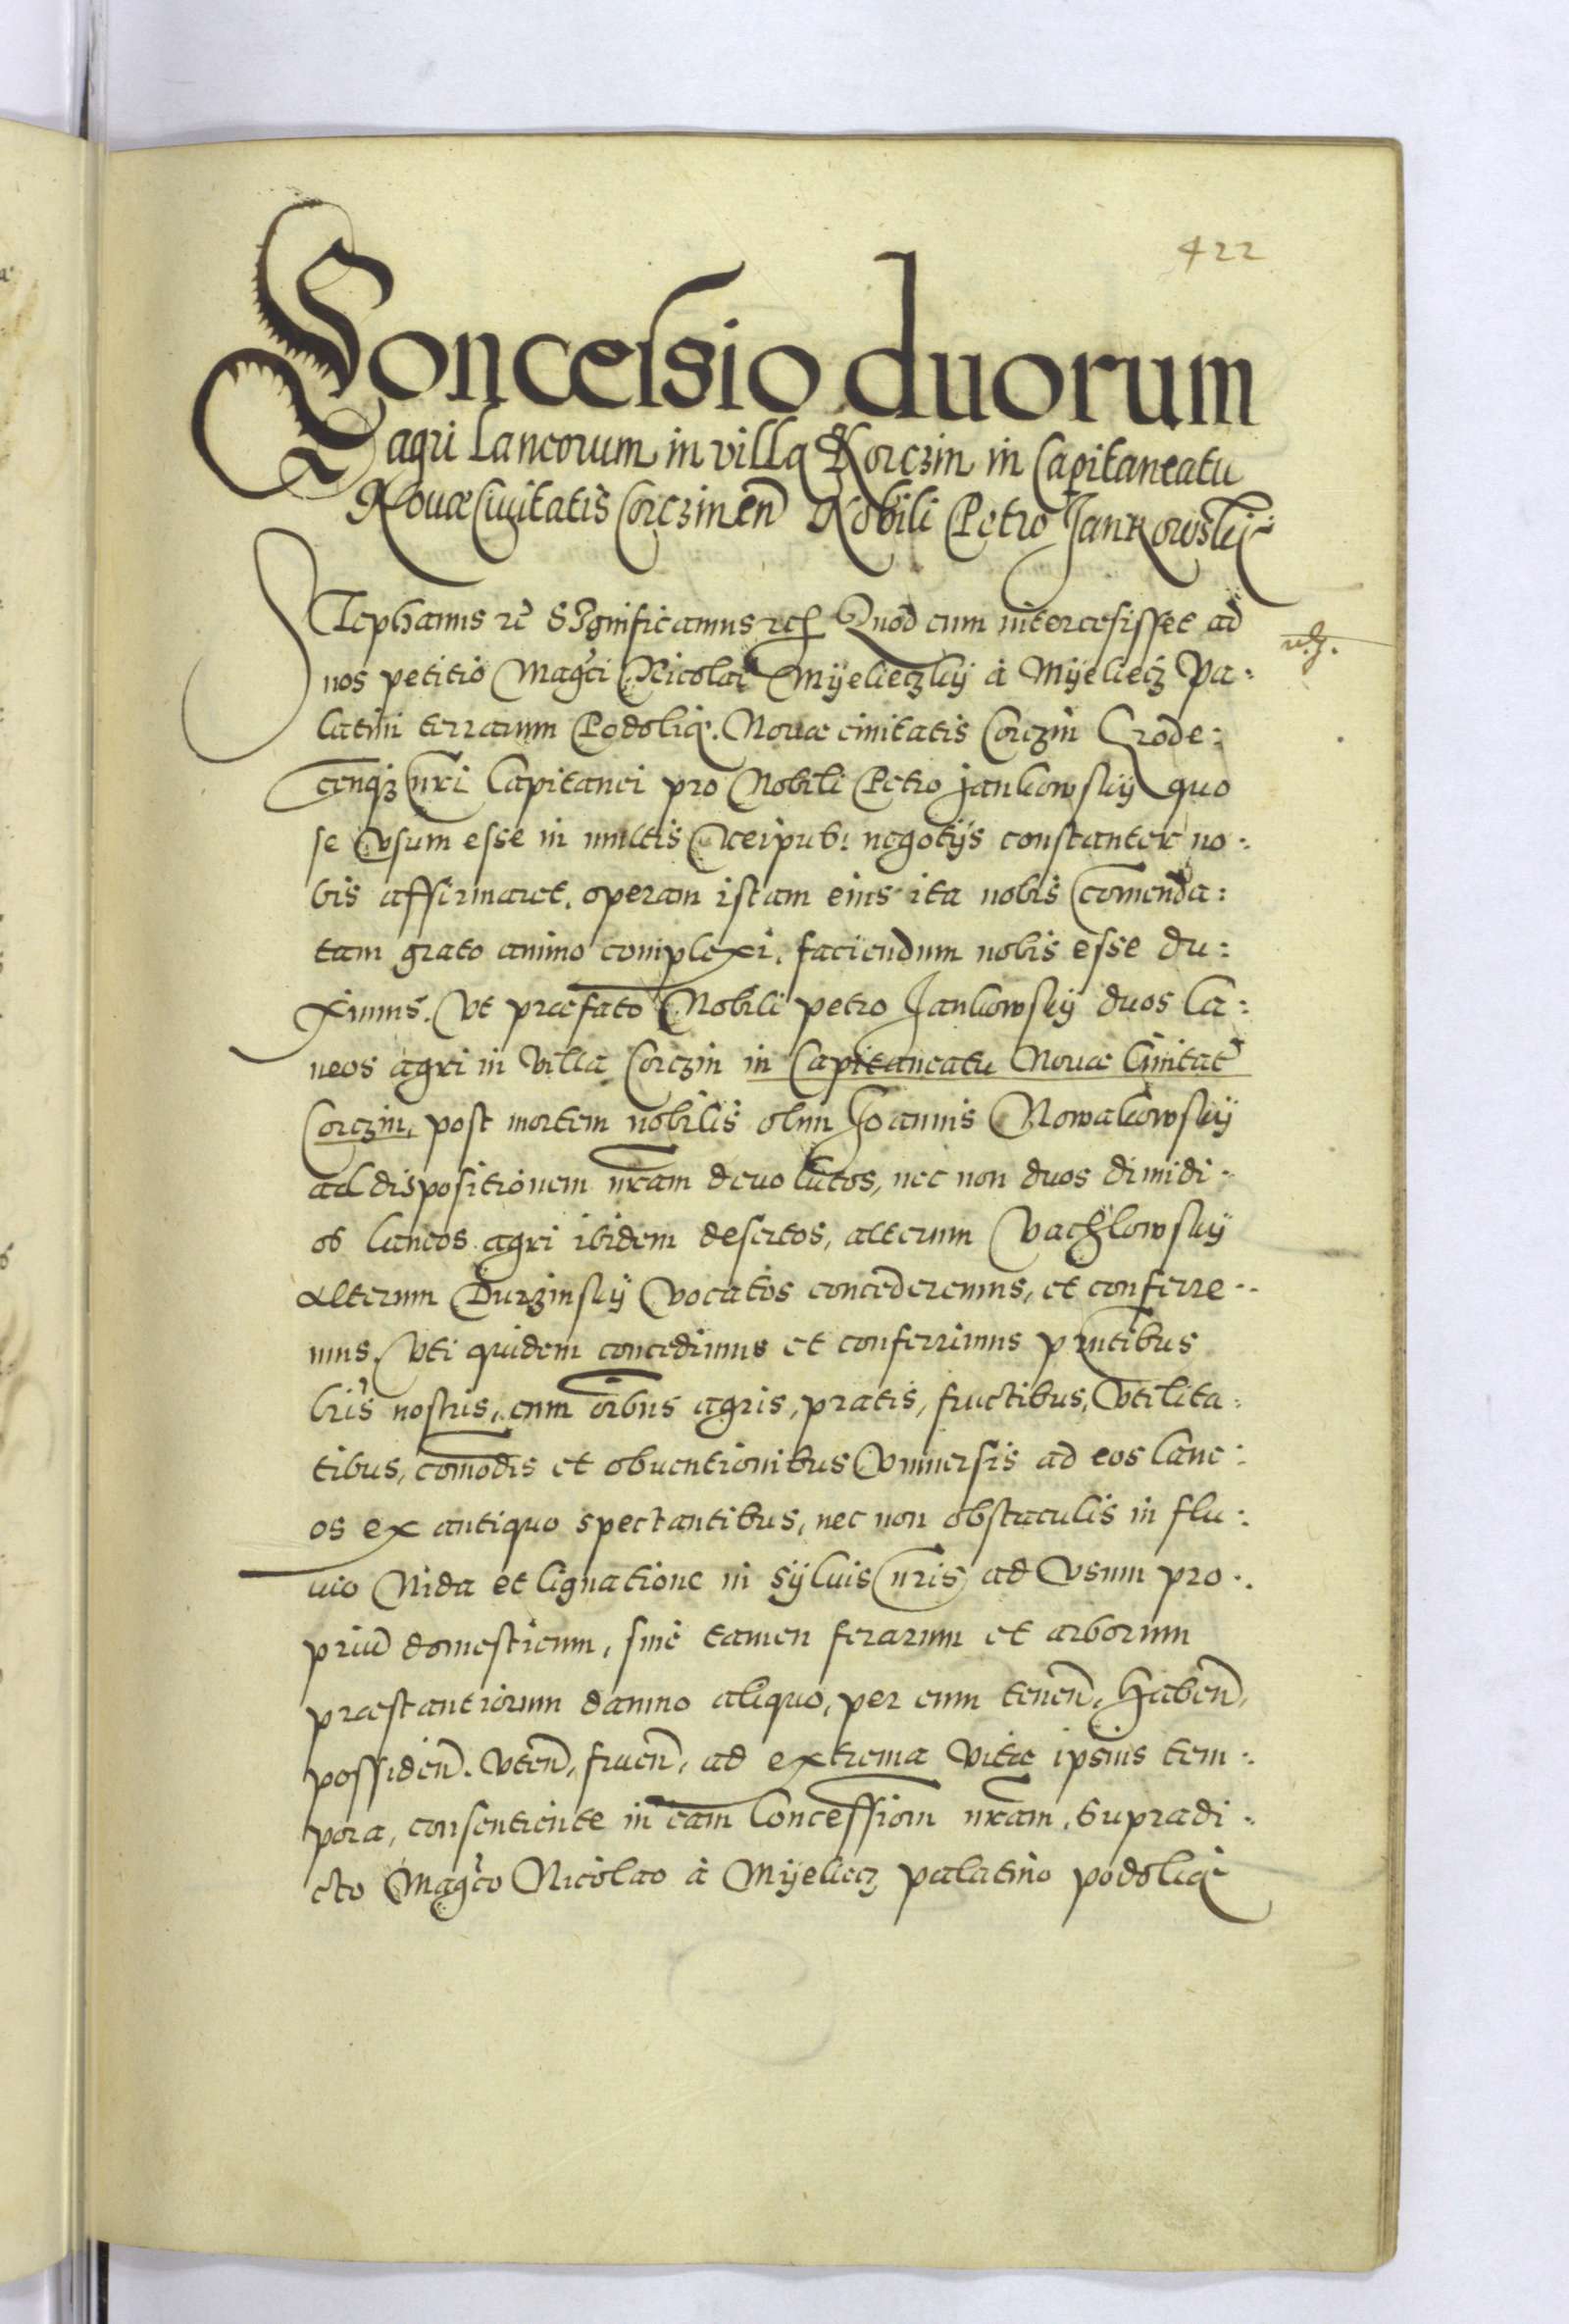 422
Concessio duorum
agri laneorum in villa Korczin in Capitaneatu
Nouæ Ciuitatis Corczinen̄ Nobili Petro Jankowskÿ
Stephanus rc̄ Significamus rc̄ Quod cum intercesisset ad
nos petitio Magc̄i Nicolai Mÿelieczkÿ à Mÿeliecz Pa:
latini terrarum Podoliæ. Nouæ ciuitatis Corczin Grode:
cenq₃ nr̄i Capitanei pro Nobili Petro Jankowskÿ quo
se Vsum esse in multis Reipub: negotÿs constanter no:
bis affirmaret, operam istam eius ita nobis com̄enda:
tam grato animo complexi, faciendum nobis esse du:
ximus. Vt præfato Nobili petro Jankowskÿ duos la:
neos agri in Villa Corczin in Capitaneatu Nouæ Ciuitat̄
Corczin, post mortem nobilis olim Joannis Nowakowskÿ
ad dispositionem nr̄am deuolutos, nec non duos dimidi:
os laneos agri ibidem desertos, alterum Vachlowskÿ
alterum Durzinskÿ Vocatos concederemus, et conferre:
mus. Vti quidem concedimus et conferrimus pn̄tibus
lr̄is nostris, cum om̄ibus agris, pratis, fructibus, Vtilita:
tibus, com̄odis et obuentionibus Vniuersis ad eos lane:
os ex antiquo spectantibus, nec non obstaculis in flu:
uio Nida et lignatione in sÿluis nr̄is ad Vsum pro:
priū domesticum, sine tamen ferarum et arborum
præstantiorum damno aliquo, per eum tenen̄, Haben̄,
possiden̄. Vten̄, fruen̄, ad extrema Vitæ ipsius tem:
pora, consentiente in eam Concessiom̄ nr̄am, Supradi:
cto Magc̄o Nicolao à Mÿeliecz palatino podoliæ